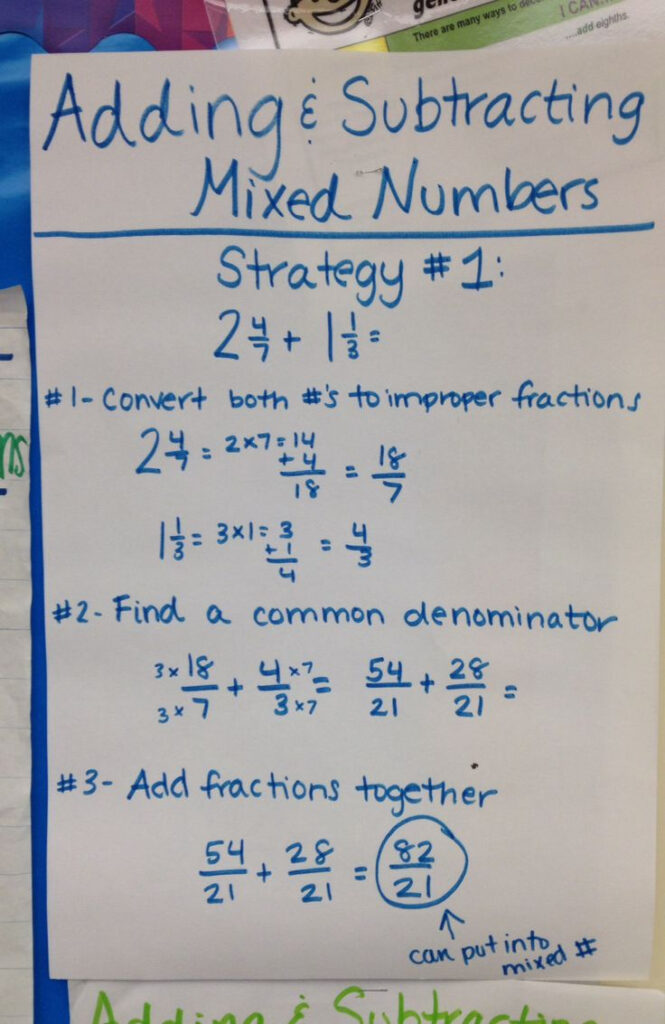 There are many ways to
I CAN...
....add eighths.
Adding & Subtracting
Mixed Numbers
Strategy #1:
2 4/7 + 1 1/3 =
#1- Convert both #'s to improper fractions
2 4/7 = 2x7=14
+ 4
18 = 18/7
1 1/3 = 3x1= 3
+ 1
4 = 4/3
#2- Find a common denominator
3x 18/3x 7 + 4 x7/3 x7 = 54/21 + 28/21 =
#3- Add fractions together
54/21 + 28/21 = 82/21
can put into
mixed #
Adding & Subtracting